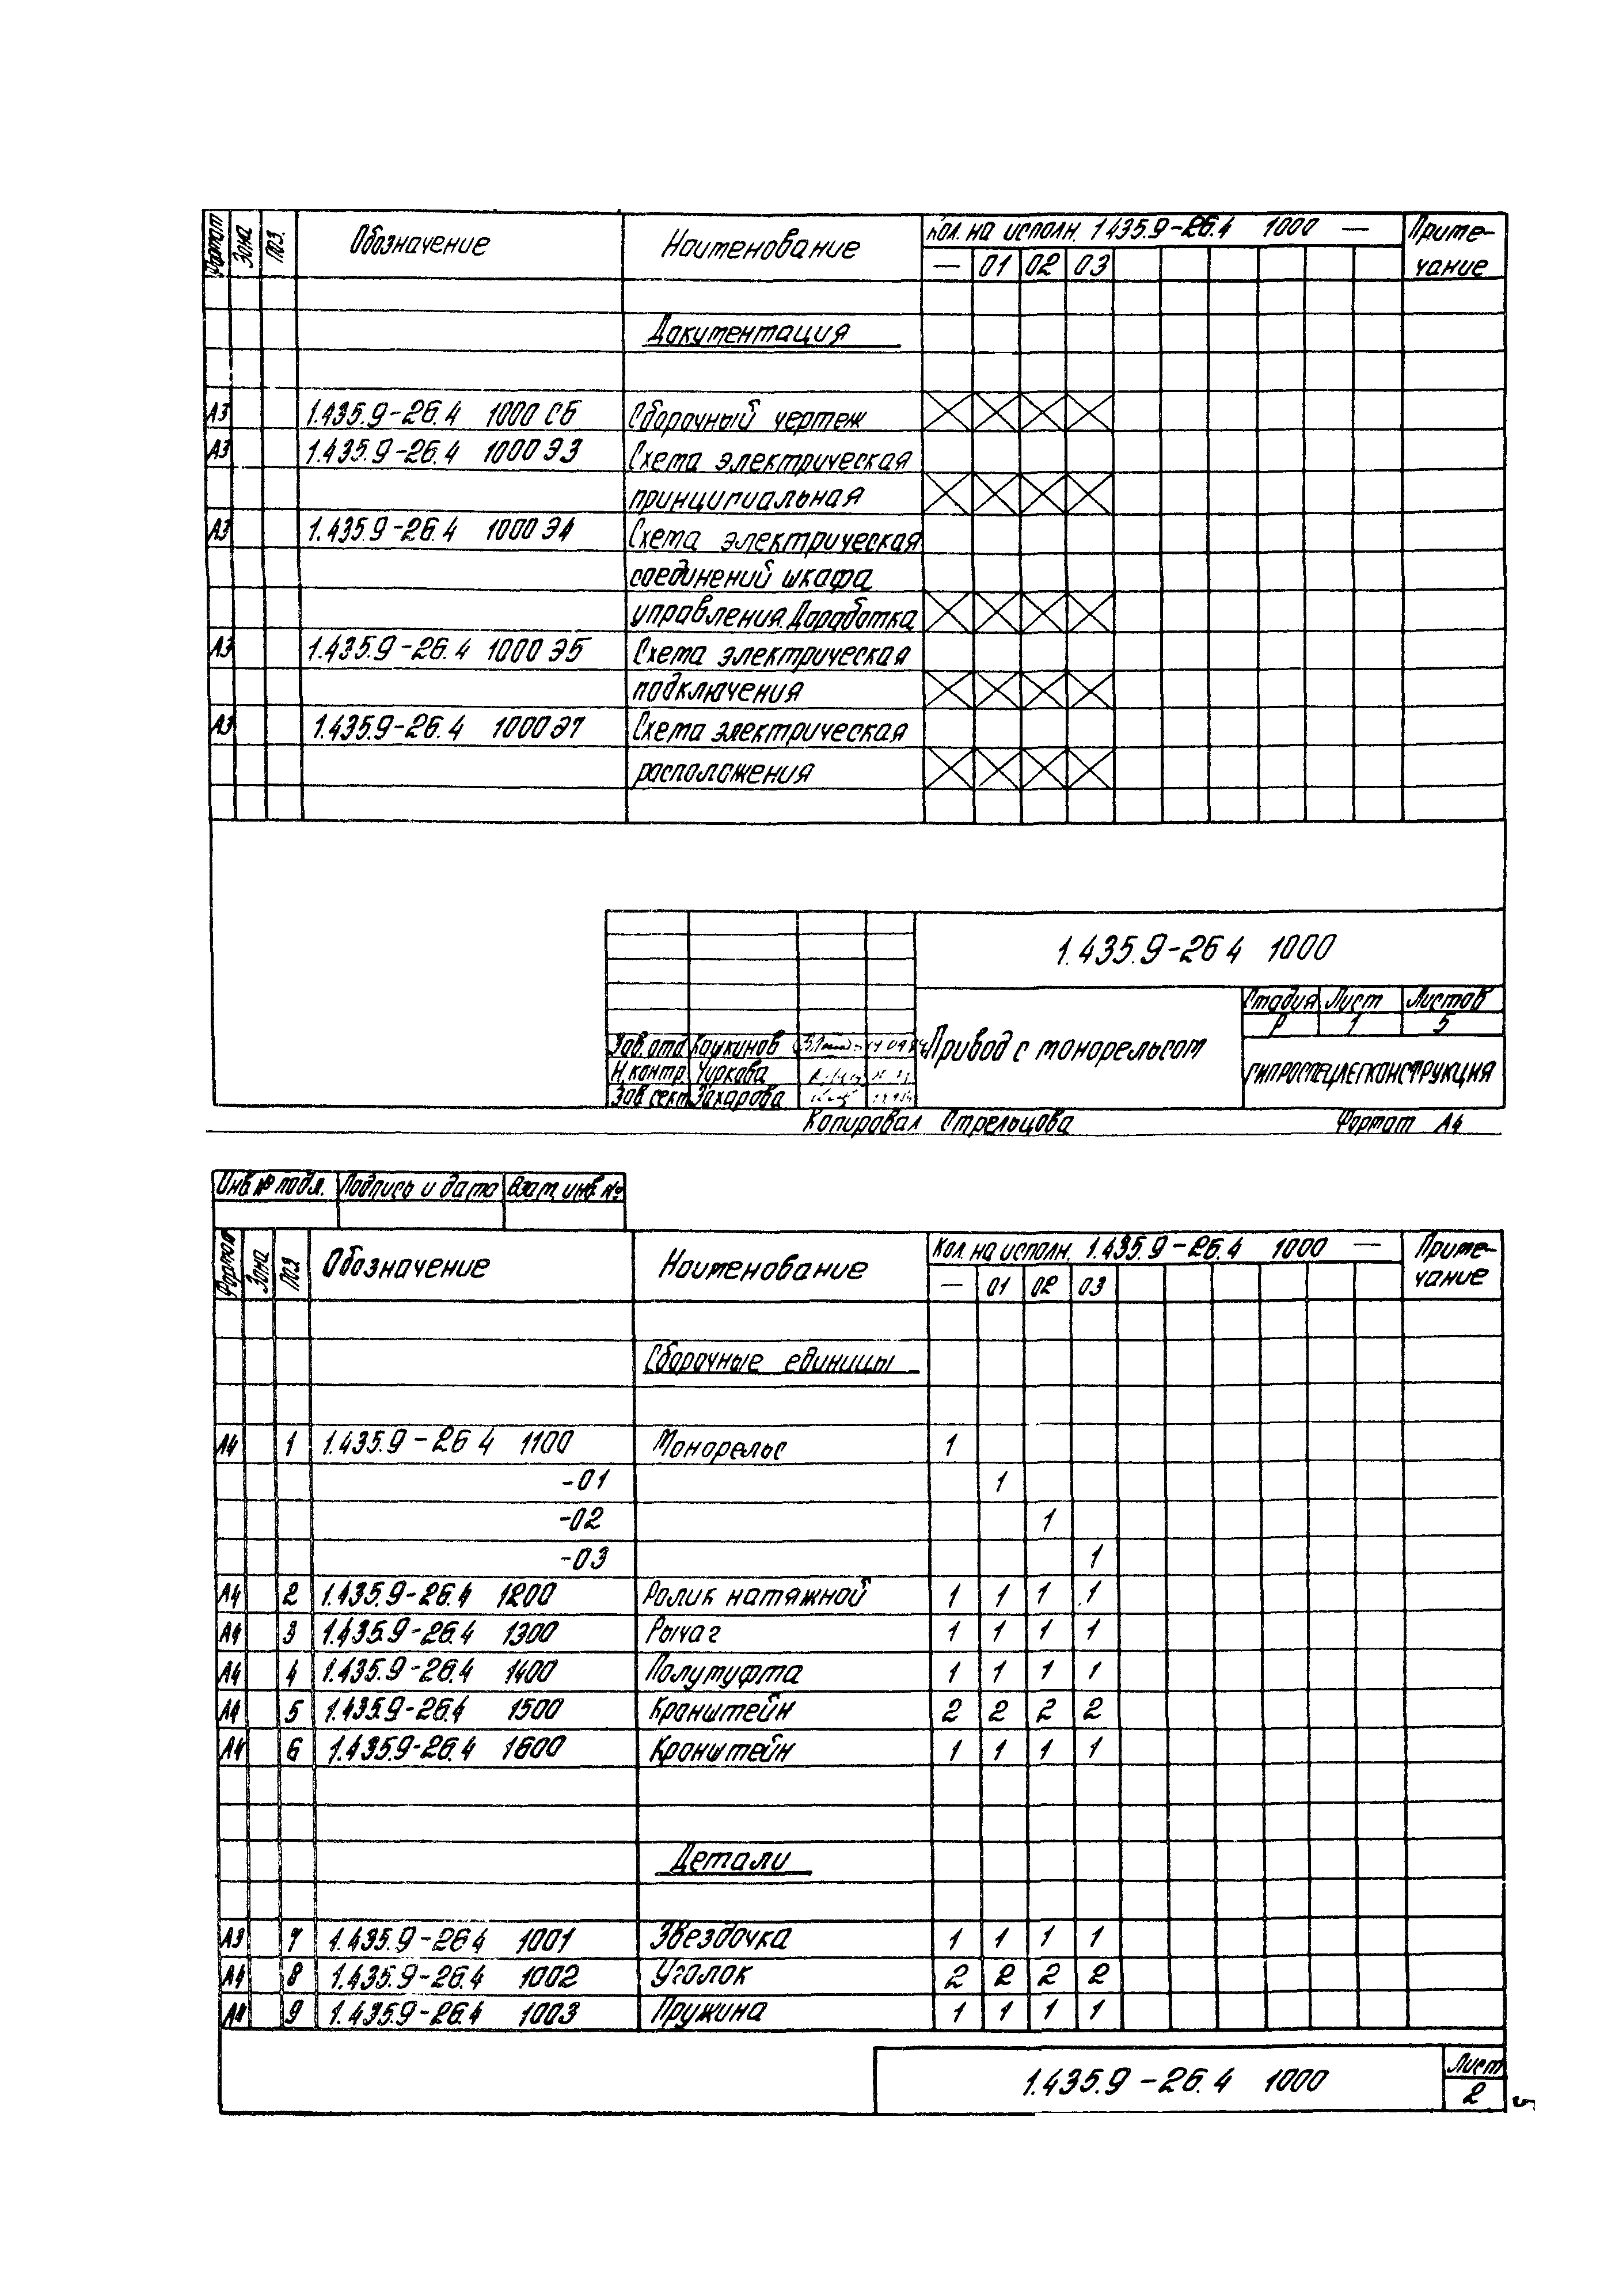 Формат Зона Поз. Обозначение Наименование Кол. на исполн. 1.435.9-26.4 1000 — Приме-
— 01 02 03 чание
Документация
А3 1.435.9-26.4 1000 СБ Сборочный чертеж
А3 1.435.9-26.4 1000 Э3 Схема электрическая
принципиальная
А3 1.435.9-26.4 1000 Э4 Схема электрическая
соединений шкафа
управления. Доработка
А3 1.435.9-26.4 1000 Э5 Схема электрическая
подключения
А3 1.435.9-26.4 1000 Э7 Схема электрическая
расположения
1.435.9-26 4 1000
Стадия Лист Листов
Р 1 5
Зав. отд Кашкинов
Привод с монорельсом
Н. контр. Чуркова
ГИПРОСПЕЦЛЕГКОНСТРУКЦИЯ
Зав сект. Захарова
Копировал Стрельцова Формат А4
Инв № подл. Подпись и дата Взам. инв №
Формат Зона Поз Обозначение Наименование Кол. на исполн. 1.435.9-26.4 1000 — Приме-
— 01 02 03 чание
Сборочные единицы
А4 1 1.435.9-26 4 1100 Монорельс 1
-01 1
-02 1
-03 1
А4 2 1.435.9-26.4 1200 Ролик натяжной 1 1 1 1
А4 3 1.435.9-26.4 1300 Рычаг 1 1 1 1
А4 4 1.435.9-26.4 1400 Полумуфта 1 1 1 1
А4 5 1.435.9-26.4 1500 Кронштейн 2 2 2 2
А4 6 1.435.9-26.4 1600 Кронштейн 1 1 1 1
Детали
А3 7 1.435.9-26 4 1001 Звездочка 1 1 1 1
А4 8 1.435.9-26.4 1002 Уголок 2 2 2 2
А4 9 1.435.9-26.4 1003 Пружина 1 1 1 1
1.435.9-26.4 1000 Лист
2 5